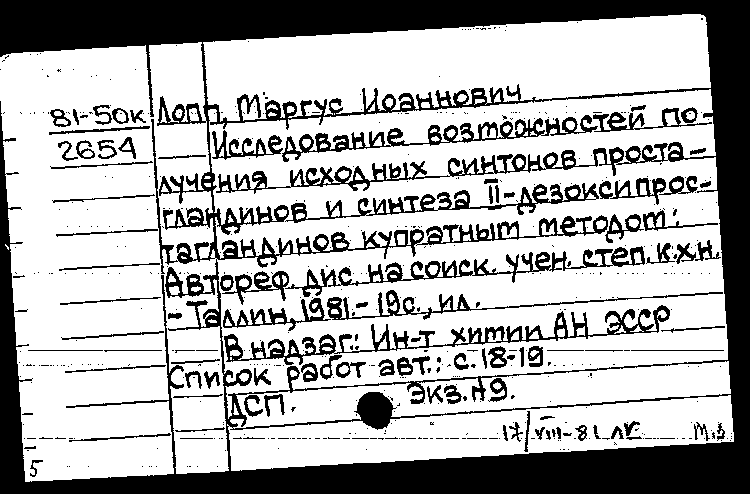 81-50к Лопп, Маргус Иоаннович.
2654 Исследование возможностей по-
лучения исходных синтонов проста-
гландинов и синтеза II-дезоксипрос-
тагландинов купратным методом:
Автореф. дис. на соиск. учен. степ. к.х.н.
- Таллин, 1981.- 19с., ил.
В надзаг.: Ин-т химии АН ЭССР
Список работ авт.: с. 18-19.
ДСП. Экз.№9.
17/VIII-81
5